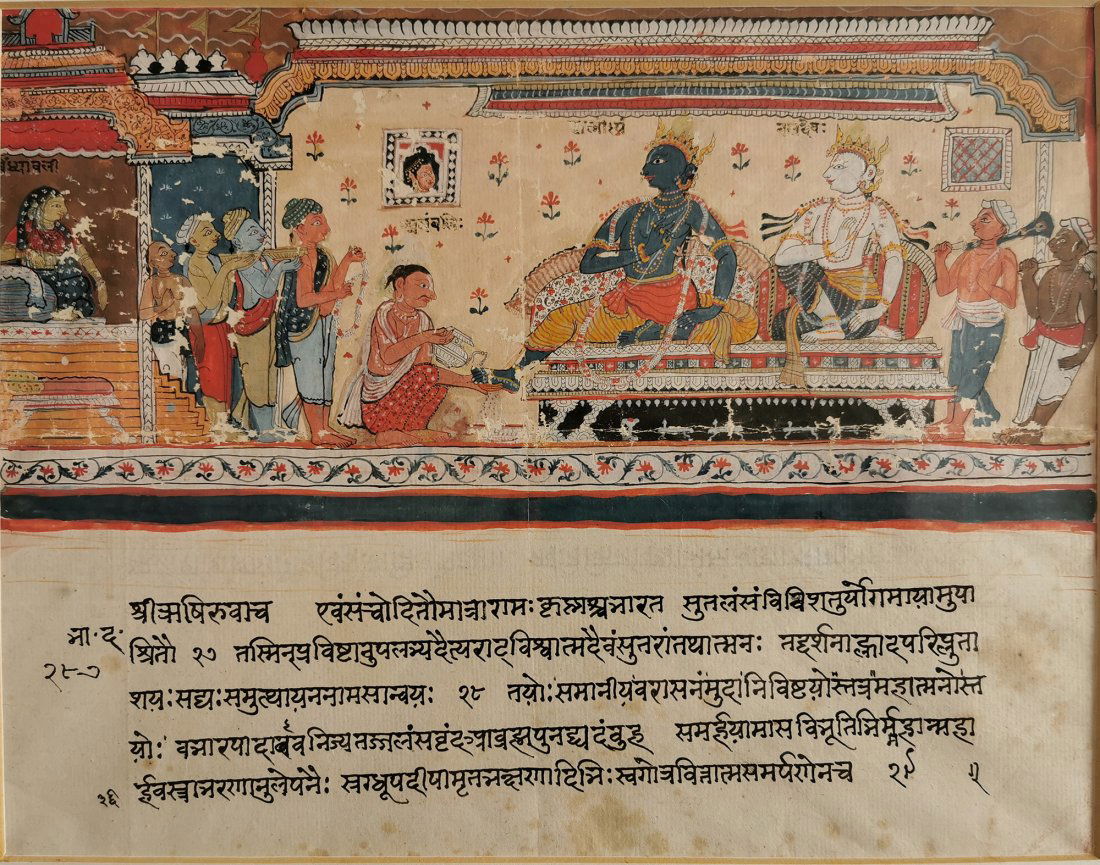 ध्यावली
बलदेवः
श्रीऋषिरुवाच एवंसंचोदितौमात्रारामःकृष्णश्चभारत सुतलंसंविविशतुर्योगमायामुपा
भा·द·
श्रितौ २७ तस्मिन्प्रविष्टावुपलभ्यदैत्यराट्विश्वात्मदैवंसुतरांतथात्मनः तद्दर्शनाह्लादपरिप्लुता
२८७
शयःसद्यःसमुत्थायननामसान्वयः २८ तयोःसमानीयवरासनंमुदानिविष्टयोस्तत्रमहात्मनोस्त
योः दधारपादावनिज्यतज्जलंसवृंदआब्रह्मपुनद्यदंबुह समर्हयामासविभूतिभिर्महान्महा
र्हवस्त्राभरणानुलेपनैः स्रग्धूपदीपामृतभक्षणादिभिःस्वगोत्रवित्तात्मसमर्पणेनच २९ ॥
३६